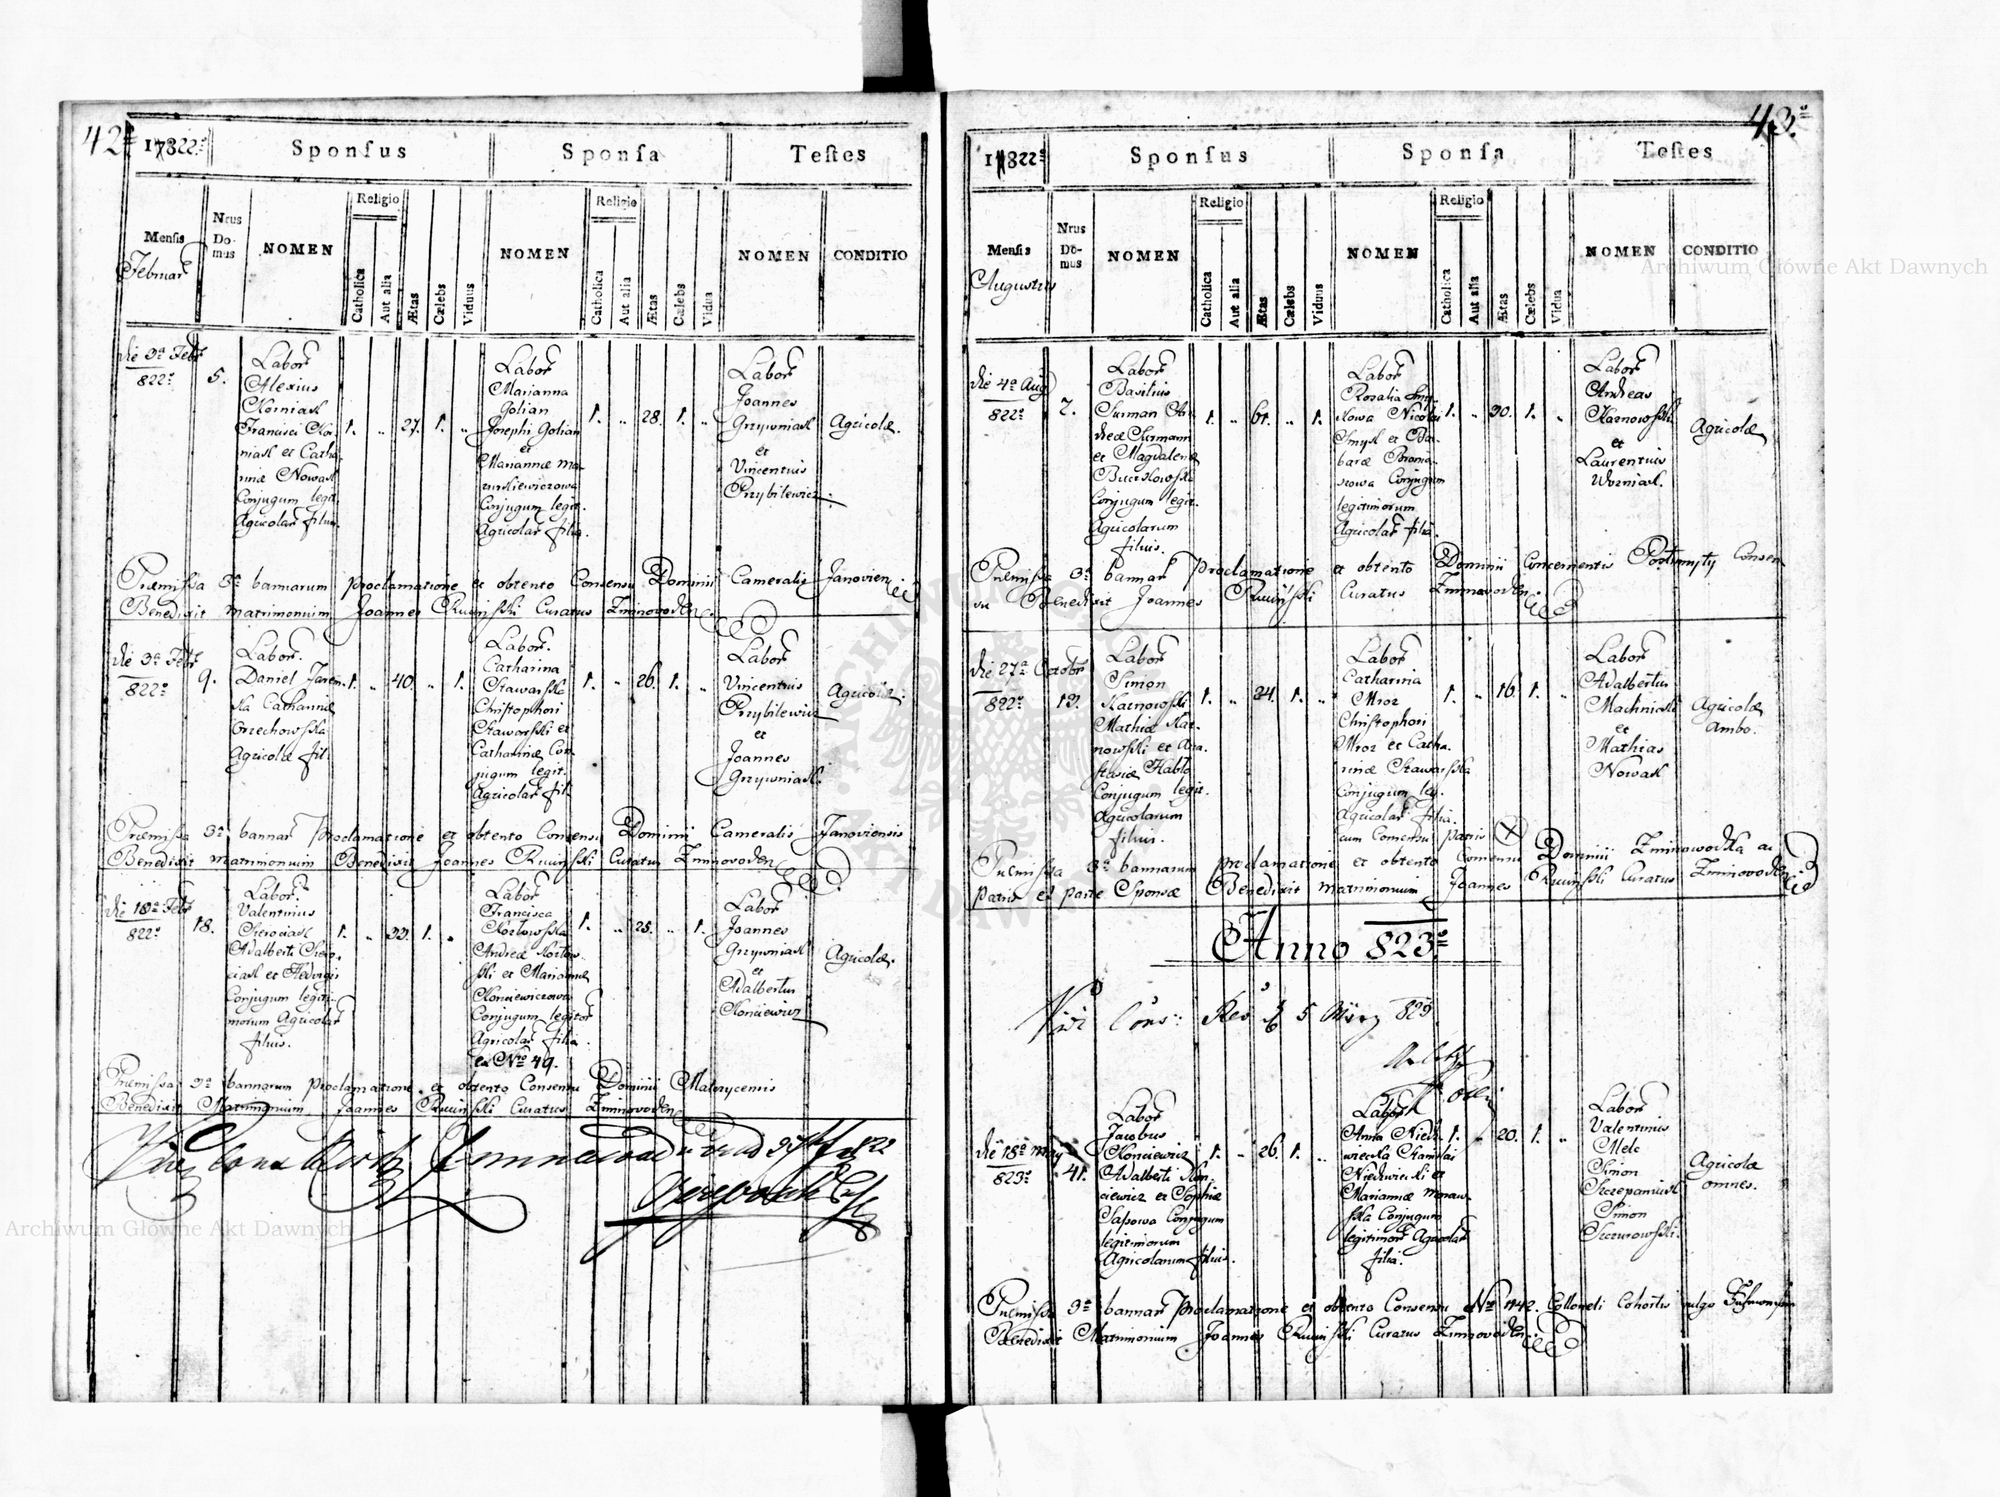 42
17822
Sponsus
Sponsa
Testes
Mensis
Februar
Nrus
Do-
mus
NOMEN
Religio
Catholica
Aut alia
Ætas
Cælebs
Viduus
NOMEN
Religio
Catholica
Aut alia
Ætas
Cælebs
Vidua
NOMEN
CONDITIO
die 3a Febr
822
5.
Labor
Alexius
Korniak
Francisci Kor-
niak et Catha-
rinæ Nowak
Conjugum legit.
Agricolar filius.
1. „ 27. 1. „
Labor
Marianna
Golian
Josephi Golian
et
Mariannæ Ma-
zurkiewiczowa
Conjugum legit.
Agricolar filia.
1. „ 28. 1. „
Labor
Joannes
Grzywniak
et
Vincentius
Przybilewicz
Agricolæ.
Præmissa 3a bannarum proclamatione et obtento Consensu Dominii Cameralis Janovien
Benedixit matrimonium Joannes Curatus Zimnovoden
die 3a Febr
822
9.
Labor.
Daniel Jaren-
ka Catharinæ
Grzechowska
Agricolæ fil.
1. „ 40. „ 1.
Labor.
Catharina
Skawarska
Christophori
Skawarski et
Catharinæ Con-
jugum legit.
Agricolar fil.
1. „ 26. 1. „
Labor
Vincentius
Przybilewicz
et
Joannes
Grzywniak.
Agricolæ.
Præmissa 3a bannar proclamatione et obtento Consensu Dominii Cameralis Janoviensis
Benedixit matrimonium Benedixit Joannes Curatus Zimnovoden
die 18a Febr
822
18.
Labor.
Valentinus
Adalberti
et Hedvigis
Conjugum legiti-
morum Agricolar
filius.
1. „ 33. 1. „
Labor
Francisca
Kozlowska
Andreæ Kozlow-
ski et Mariannæ
Konciewiczowa
Conjugum legitor
Agricolar filia
ex Nro 49.
1. „ 25. „ 1.
Labor
Joannes
Grzywniak
et
Adalbertus
Konciewicz
Agricolæ.
Præmissa 3a bannarum proclamatione et obtento Consensu Dominii Malczycensis
Benedixit Matrimonium Joannes Curatus Zimnovoden
43.
17822
Sponsus
Sponsa
Testes
Mensis
Augustus
Nrus
Do-
mus
NOMEN
Religio
Catholica
Aut alia
Ætas
Cælebs
Viduus
NOMEN
Religio
Catholica
Aut alia
Ætas
Cælebs
Vidua
NOMEN
CONDITIO
die 4a Aug
822
2.
Labor
Basilius
Surman An-
dreæ Surmann
et Magdalenæ
Buczkowska
Conjugum legit.
Agricolarum
filius.
1. „ 61. „ 1.
Labor
Rosalia Smy-
kowa Nicolai
Smyk et Bar-
baræ
Conjugum
legitimorum
Agricolar filia.
1. „ 30. 1. „
Labor
Andreas
Karnowski
et
Laurentius
Wozniak.
Agricolæ
Præmissa 3a bannar proclamatione et obtento Dominii Concernentis Consen-
su Benedixit Joannes Curatus Zimnovoden
die 27a Octobr
822
13.
Labor
Simon
Karnowski
Mathiæ Kar-
nowski et Ana-
stasiæ Hablo
Conjugum legit.
Agricolarum
filius.
1. „ 24. 1. „
Labor
Catharina
Mroz
Christophori
Mroz et Catha-
rinæ Skawarska
Conjugum leg.
Agricolar filia.
cum Consensu patris
1. „ 16. 1. „
Labor
Adalbertus
Machnicki
et
Mathias
Nowak
Agricolæ
ambo.
Præmissa 3a bannarum proclamatione et obtento Consensu Dominii Zimnowodka ac
Patris ex parte Sponsæ Benedixit matrimonium Joannes Curatus Zimnovoden
Anno 823
5 März 823
die 18a May
823
41.
Labor
Jacobus
Konciewicz
Adalberti Kon-
ciewicz et Sophiæ
Conjugum
legitimorum
Agricolarum filius.
1. „ 26. 1. „
Labor
Anna Niedz-
wiecka Stanislai
Niedzwiecki et
Mariannæ Moraw-
ska Conjugum
legitimor Agricolar
filia.
1. „ 20. 1. „
Labor
Valentinus
Melc
Simon
Szczepaniak
Simon
Szczurowski.
Agricolæ
omnes.
Præmissa 3a bannar proclamatione et obtento Consensu Nro 1142. Colloneli Cohortis vulgo
Benedixit Matrimonium Joannes Curatus Zimnovoden
Archiwum Główne Akt Dawnych
Archiwum Główne Akt Dawnych